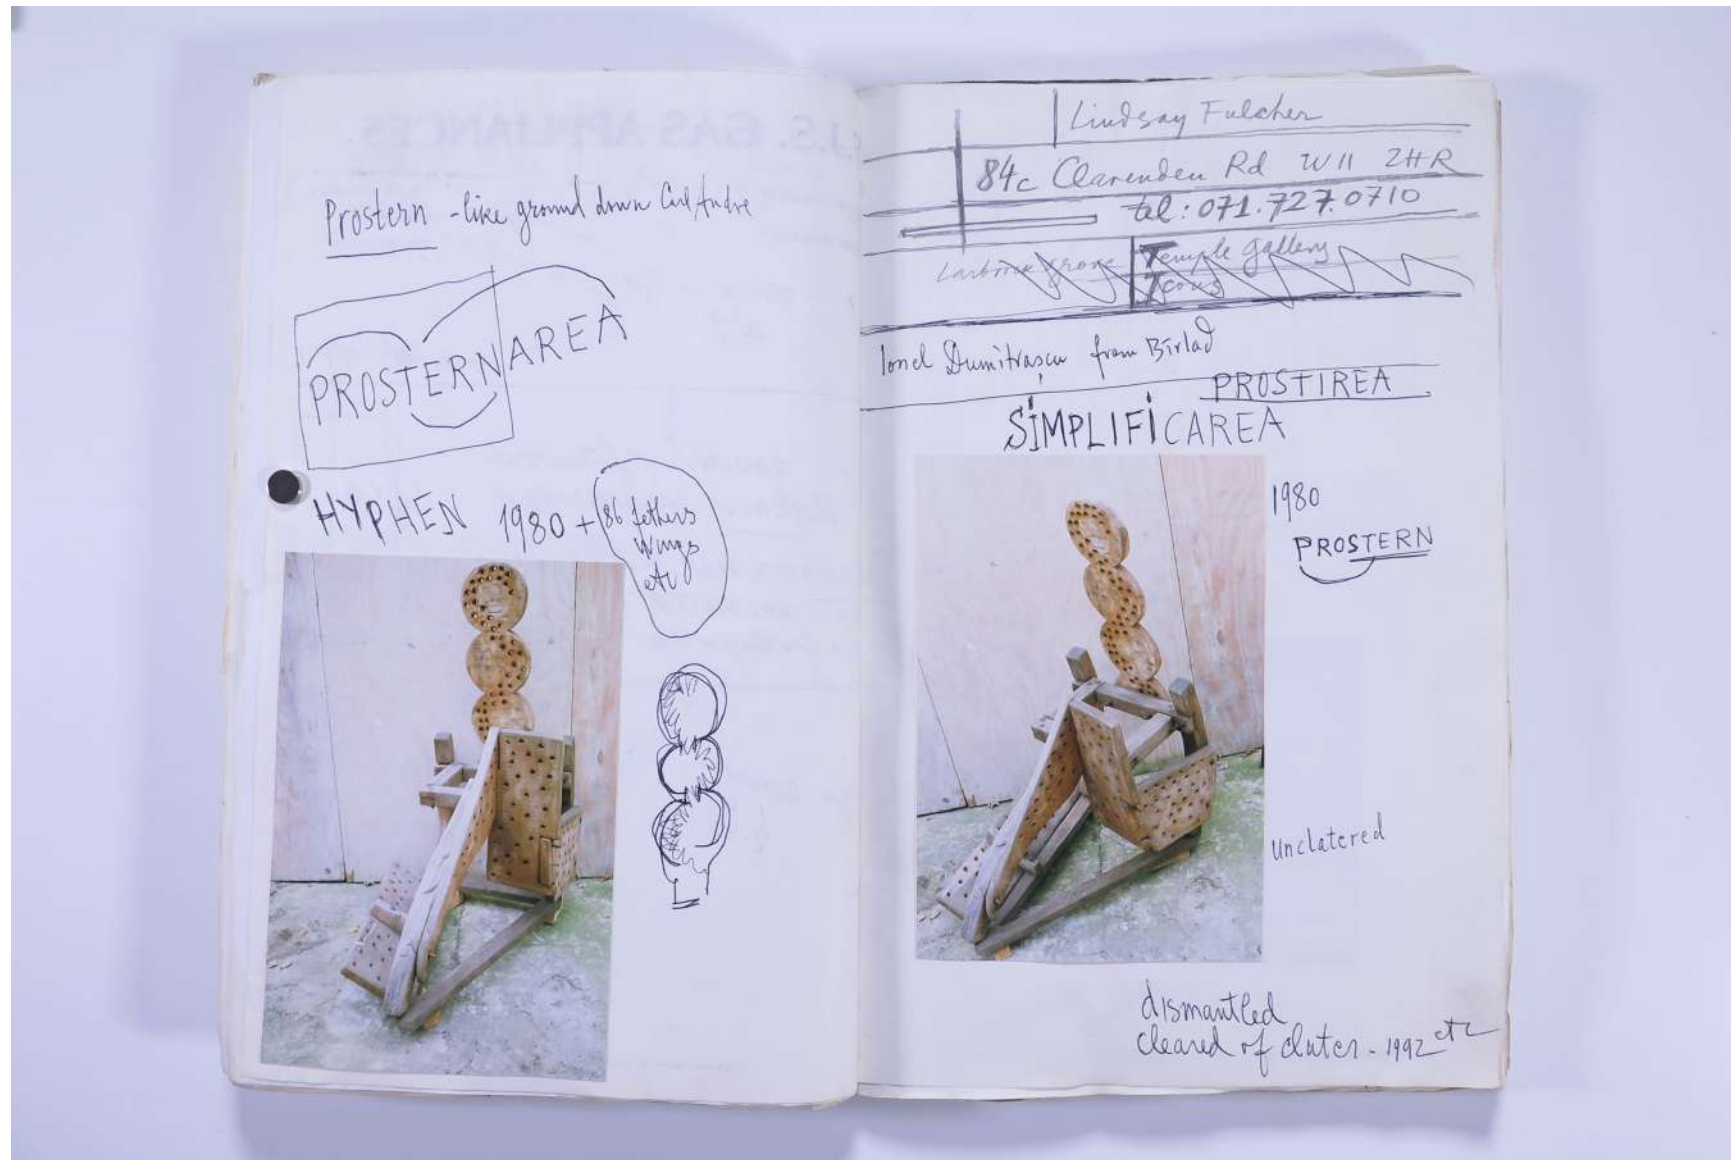 Prostern - like ground down Carl Andre
PROSTERNAREA
HYPHEN 1980 + 86 fethers
wings
etc
Lindsay Fulcher
84c Clarenden Rd W11 2HR
tel: 071.727.0710
Temple gallery
Icons
Ionel Dumitrașcu from Bîrlad
PROSTIREA
SIMPLIFICAREA
1980
PROSTERN
unclatered
dismantled
cleared of cluter - 1992 etc